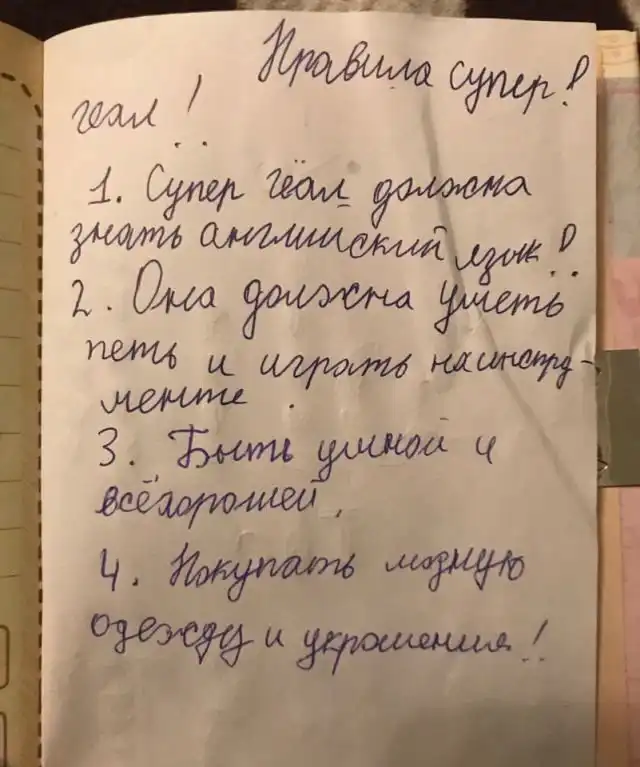 Правила супер!
гёал!
1. Супер гёал должна
знать английский язык!
2. Она должна уметь
петь и играть на инстру-
менте.
3. Быть умной и
всёхорошей.
4. Покупать модную
одежду и украшения!